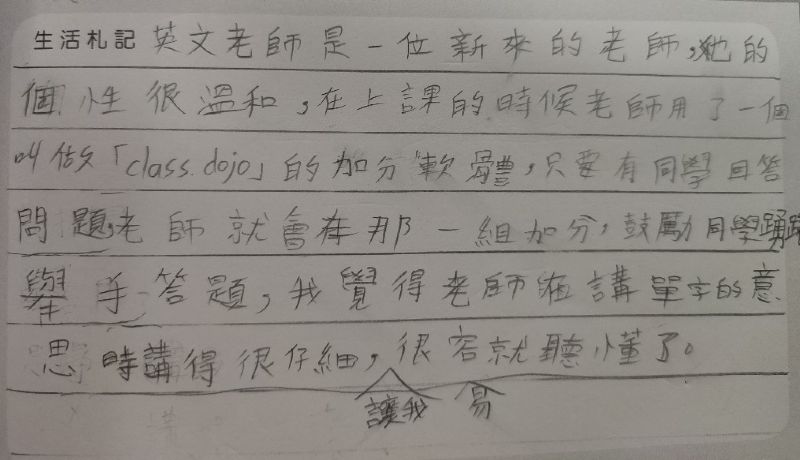 生活札記 英文老師是一位新來的老師,她的
個性很溫和,在上課的時候老師用了一個
叫做「class dojo」的加分軟體,只要有同學回答
問題,老師就會在那一組加分,鼓勵同學踴躍
舉手答題,我覺得老師在講單字的意
思時講得很仔細,很容就聽懂了。
讓我 易